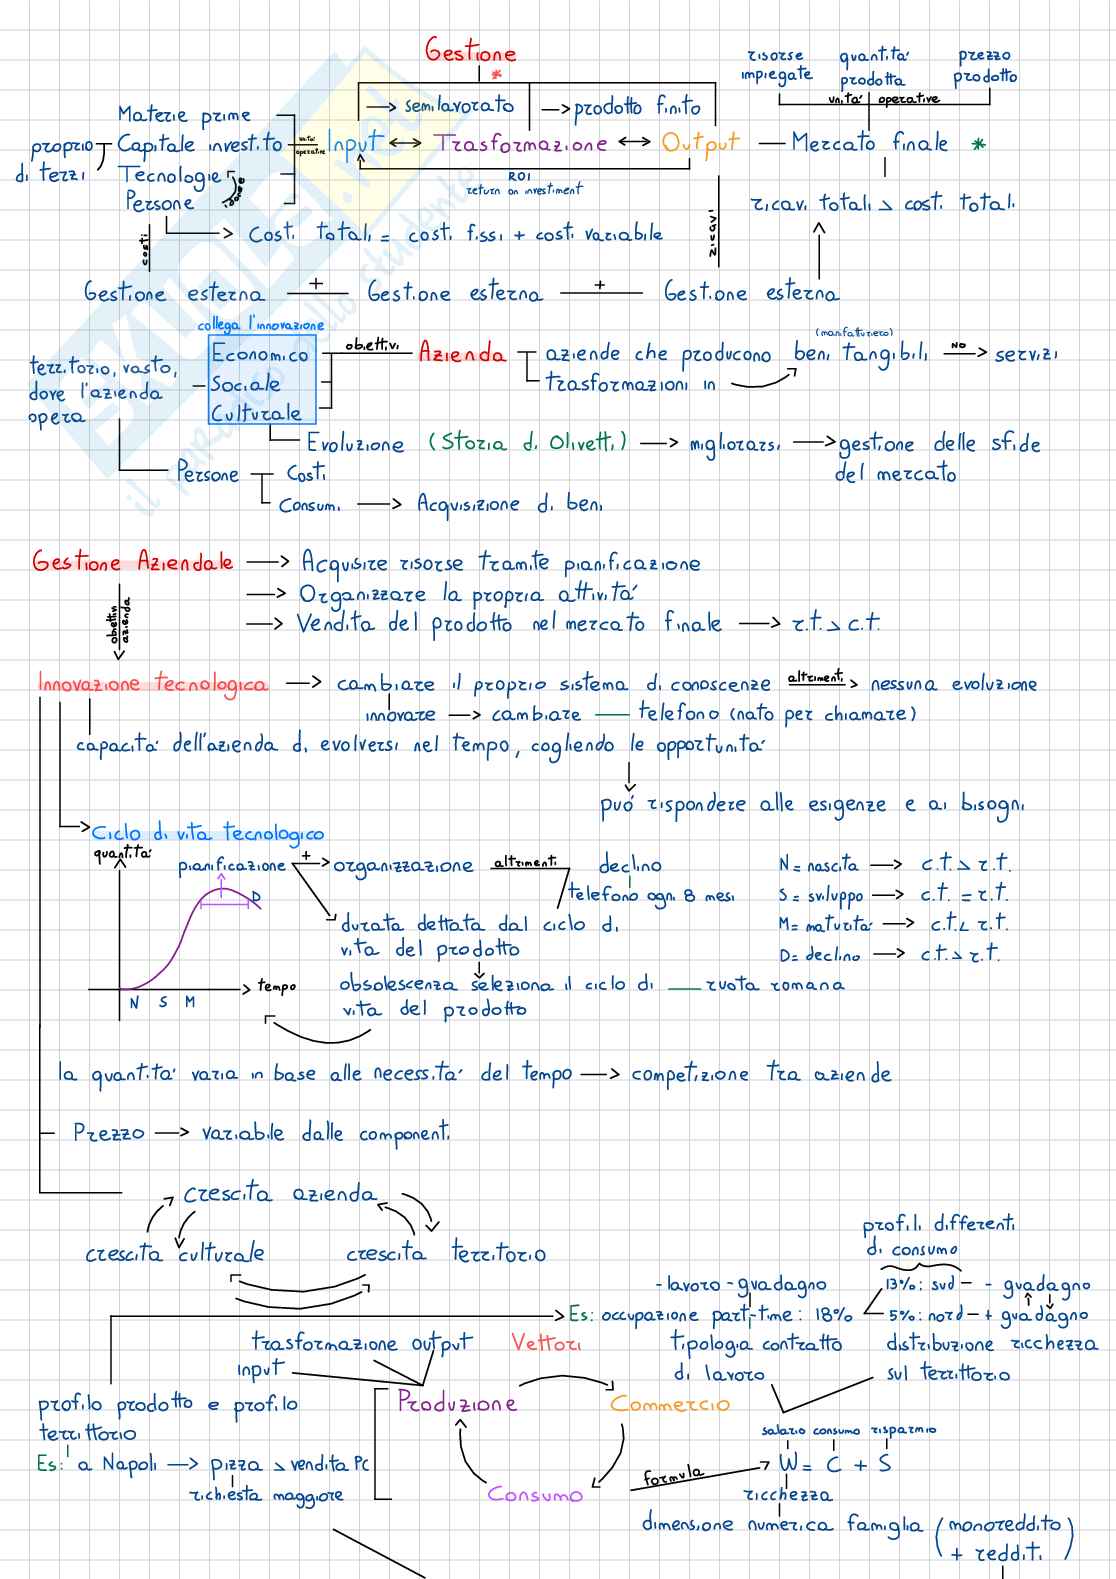 Gestione
*
risorse impiegate
quantita' prodotta
prezzo prodotto
unita' operative
→ semilavorato
→ prodotto finito
Materie prime
proprio
di terzi
Capitale investito
Tecnologie
Persone
unita' operative
Input ↔ Trasformazione ↔ Output — Mercato finale *
ROI
return on investiment
ricavi totali > costi totali
→ Costi totali = costi fissi + costi variabile
costi
ricavi
Gestione esterna + Gestione esterna + Gestione esterna
collega l'innovazione
Economico
Sociale
Culturale
territorio, vasto,
dove l'azienda
opera
obiettivi
Azienda
(manifatturiero)
aziende che producono beni tangibili NO → servizi
trasformazioni in
Evoluzione (Storia di Olivetti) → migliorarsi → gestione delle sfide
del mercato
Persone
Costi
Consumi → Acquisizione di beni
Gestione Aziendale → Acquisire risorse tramite pianificazione
→ Organizzare la propria attivita'
→ Vendita del prodotto nel mercato finale → r.t. > c.t.
obiettivi
azienda
Innovazione tecnologica → cambiare il proprio sistema di conoscenze altrimenti > nessuna evoluzione
innovare → cambiare — telefono (nato per chiamare)
capacita' dell'azienda di evolversi nel tempo, cogliendo le opportunita'
puo' rispondere alle esigenze e ai bisogni
Ciclo di vita tecnologico
quantita'
pianificazione + → organizzazione altrimenti declino
telefono ogni 8 mesi
D
durata dettata dal ciclo di
vita del prodotto
obsolescenza seleziona il ciclo di — ruota romana
vita del prodotto
N S M
tempo
N = nascita → c.t. > r.t.
S = sviluppo → c.t. = r.t.
M = maturita' → c.t. < r.t.
D = declino → c.t. > r.t.
la quantita' varia in base alle necessita' del tempo → competizione tra aziende
Prezzo → variabile dalle componenti
crescita azienda
crescita culturale
crescita territorio
profili differenti
di consumo
- lavoro - guadagno
13%: sud — - guadagno
Es: occupazione part-time: 18%
5%: nord — + guadagno
tipologia contratto
di lavoro
distribuzione ricchezza
sul territtorio
trasformazione output
input
Vettori
Produzione
Commercio
Consumo
profilo prodotto e profilo
territtorio
Es: a Napoli → pizza > vendita Pc
richiesta maggiore
formula
salario consumo risparmio
W = C + S
ricchezza
dimensione numerica famiglia (monoreddito
+ redditi)
SKUOLA.net
il paradiso dello studente